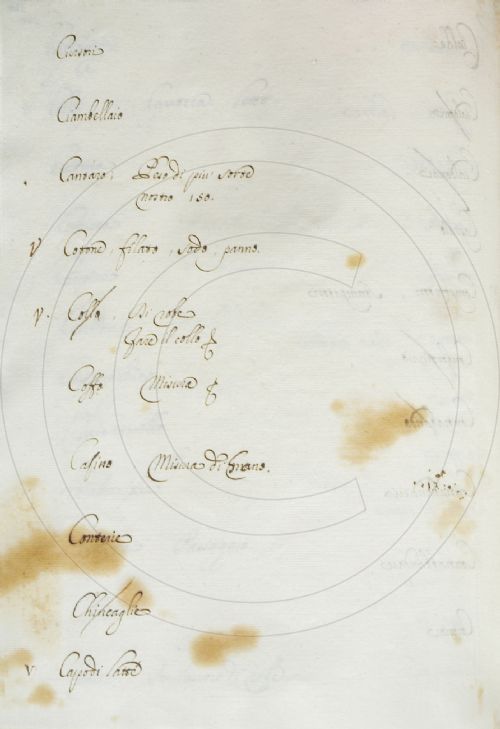 Cursori
Ciambellaio
Cantaro. Peso di piu sorte
nostro 150.
V Cotone, filato, sodo, panno.
V. Collo. Di robe
fare il collo
Coffo Misura
Cafino Misura di Grano.
Conterie
Chincaglie
V Capo di latte